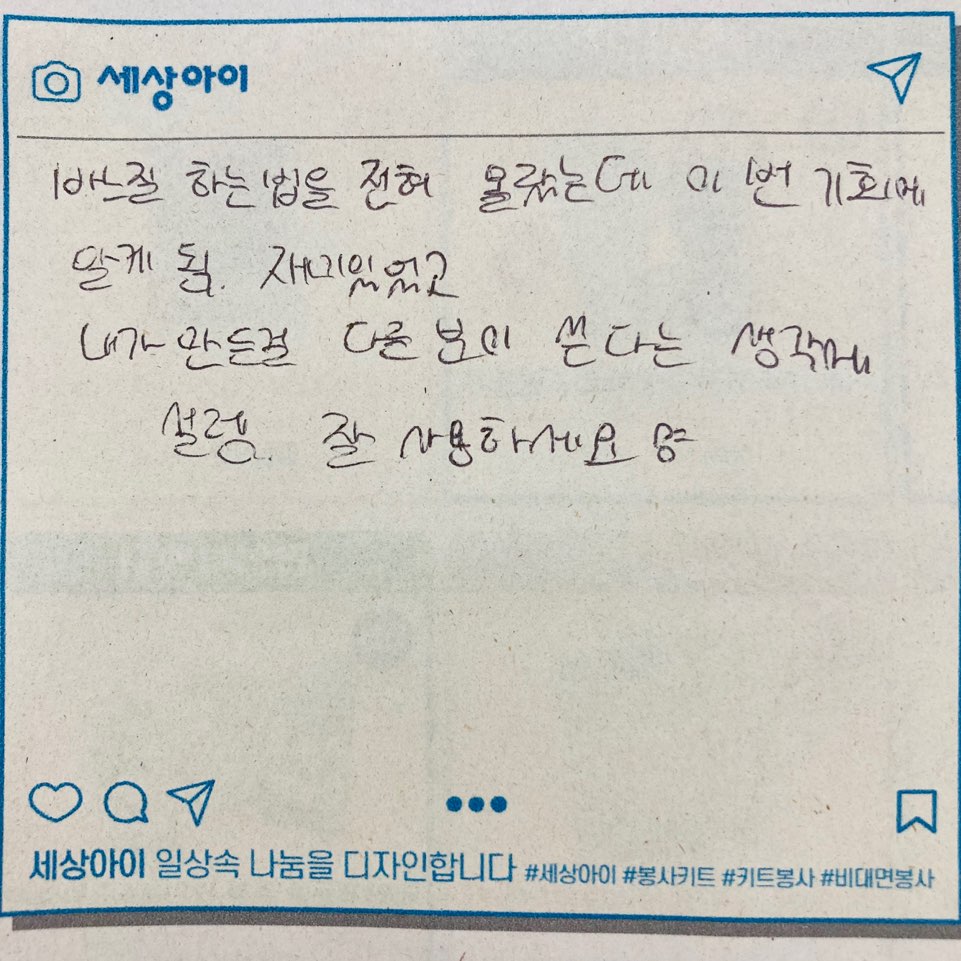 세상아이
바느질 하는법을 전혀 몰랐는데 이번 기회에
알게 됨. 재미있었고
내가 만든걸 다른 분이 쓴다는 생각에
설렘. 잘 사용하세요
세상아이 일상속 나눔을 디자인합니다 #세상아이 #봉사키트 #키트봉사 #비대면봉사